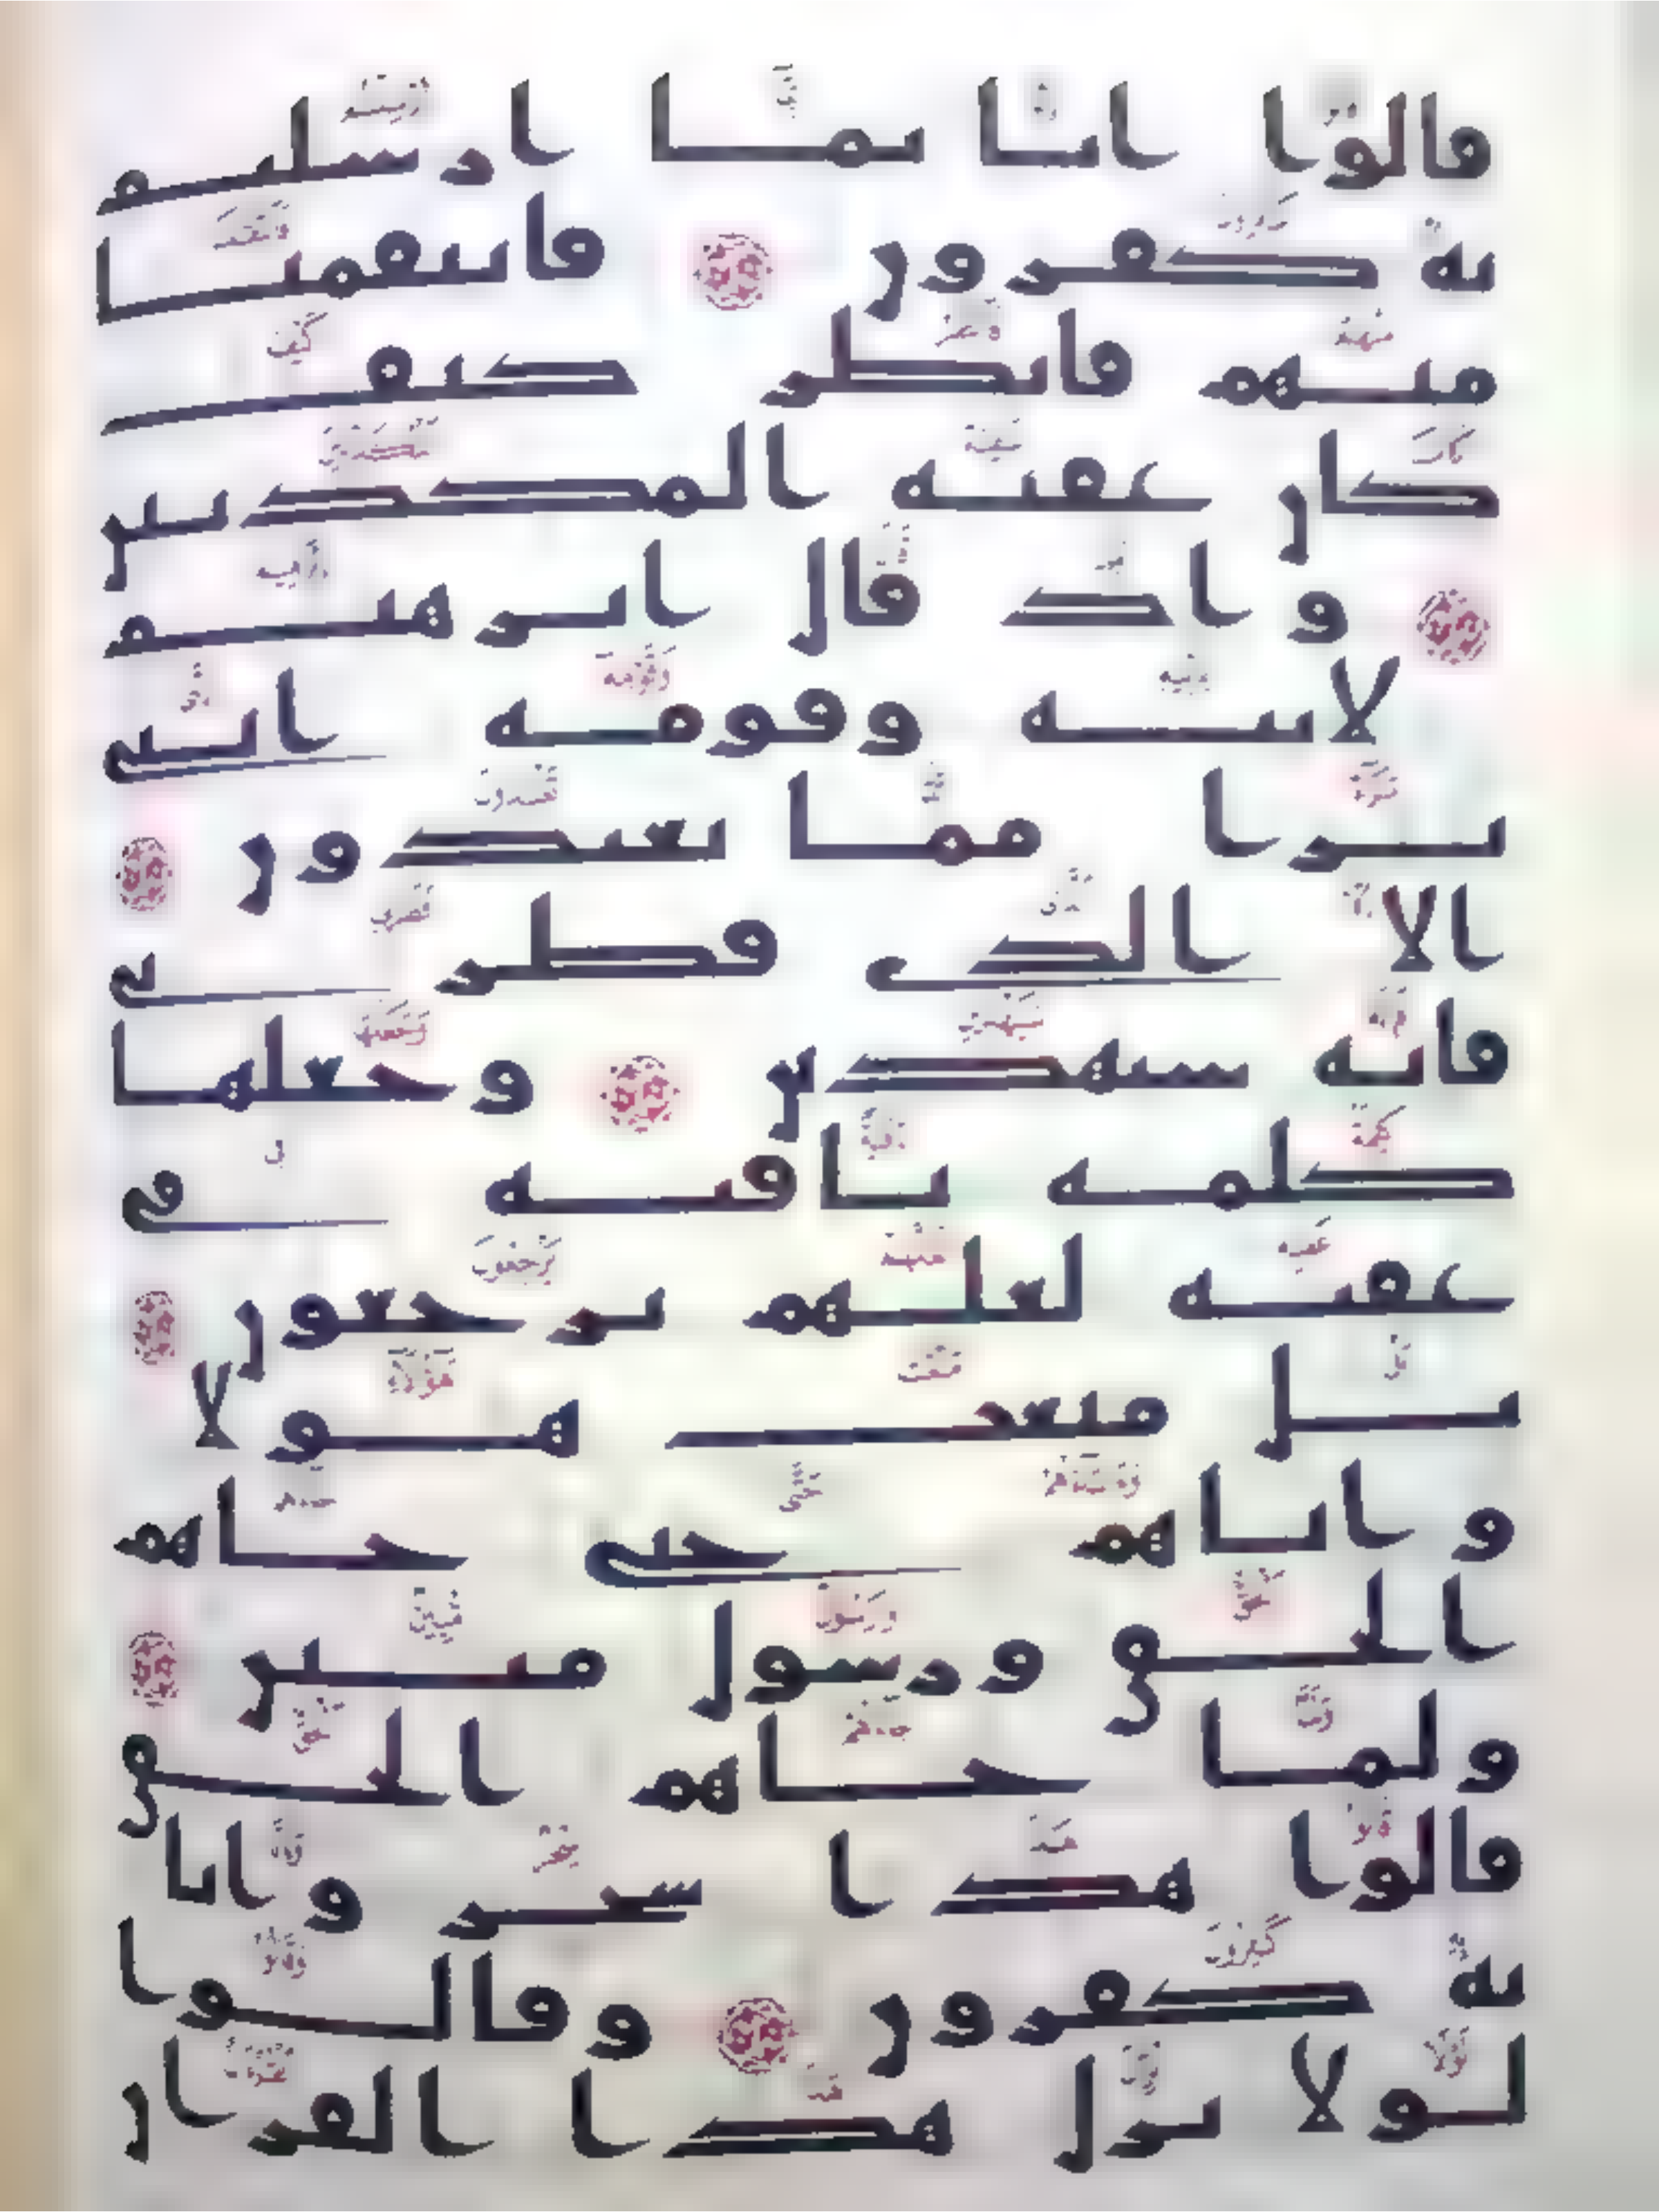 قالوا انا بما ارسلتم
به كفرون فانتقمنا
منهم فانظر كيف
كان عقبة المكذبين
و اذ قال ابرهيم
لابيه وقومه انني
برا مما تعبدون
الا الذي فطرني
فانه سيهدين وجعلها
كلمة باقية في
عقبه لعلهم يرجعون
بل متعت هولا
و اباهم حتى جاهم
الحق ورسول مبين
ولما جاهم الحق
قالوا هذا سحر وانا
به كفرون وقالوا
لولا نزل هذا القران